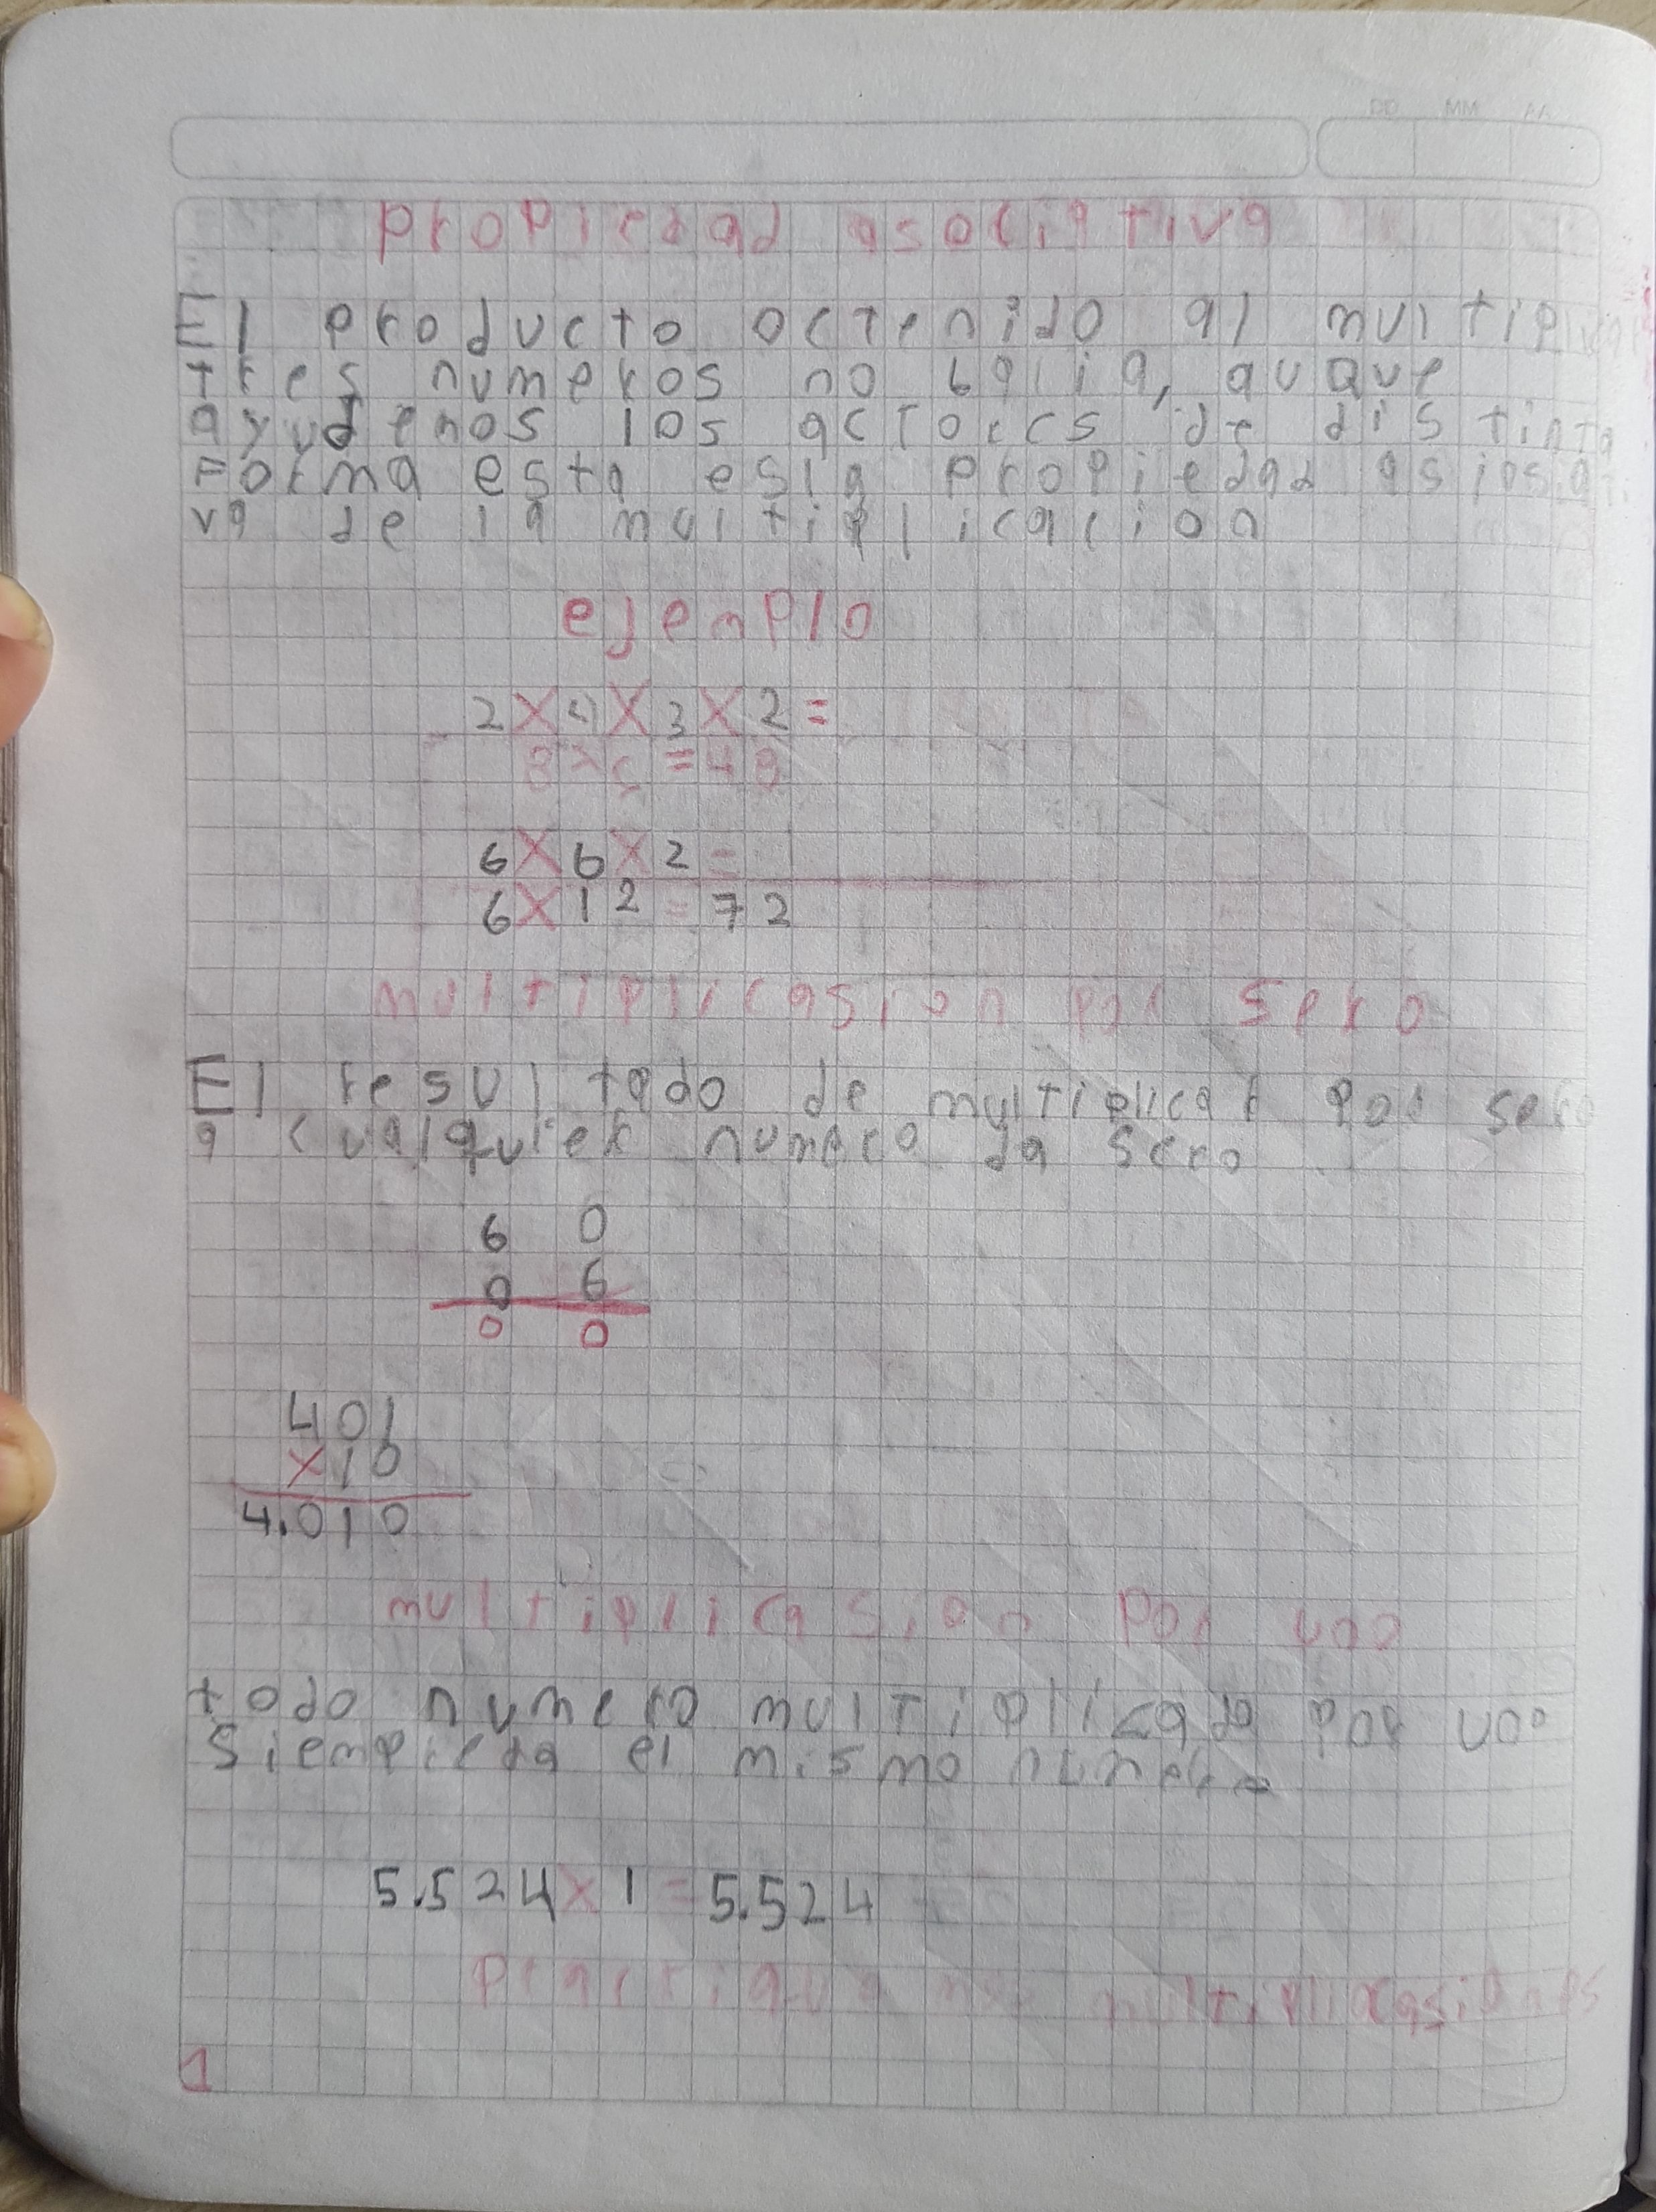 DD MM AA
propiedad asociativa
El producto octenido al multiplicar
tres numeros no baria, auque
ayudemos los actores de distinta
Forma esta esla propiedad asiosiati
va de la multiplicacion
ejemplo
2x4x3x2=
8x6=48
6x6x2=
6x12=72
multiplicasion por sero
El resultado de multiplicar por sero
a cualquier numero da sero
6 0
0 6
0 0
401
x10
4.010
multiplicasion por uno
todo numero multiplicado por uno
siempreda el mismo numero
5.524x1=5.524
multiplicasiones
1